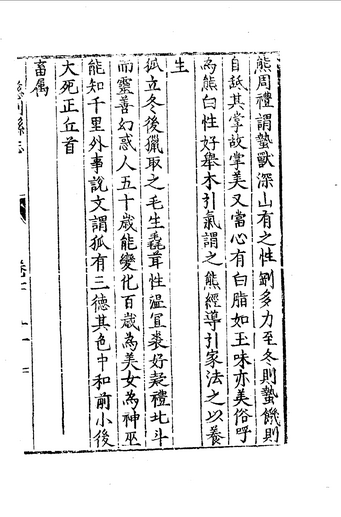 熊周禮謂蟄獸深山有之性剛多力至冬則蟄饑則
自䑛其掌故掌美又當心有白脂如玉味亦美俗呼
為熊白性好舉木引氣謂之熊經導引家法之以養
生
狐立冬後獵取之毛生毳茸性温宜裘好疑禮北斗
而靈善幻惑人五十歲能變化百歲為美女為神巫
能知千里外事說文謂狐有三德其色中和前小後
大死正丘首
畜属
縣志